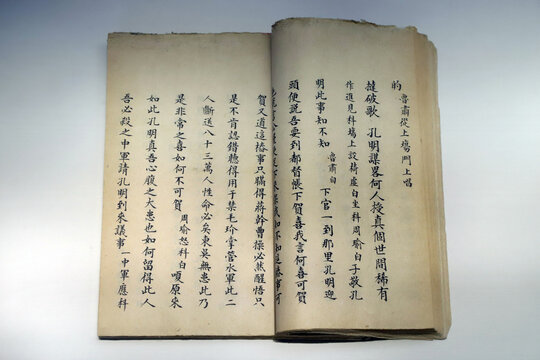 的 魯肅從上場門上唱
撻破歌 孔明謀略何人授真個世間稀有
作進見科場上設椅虛白坐科周瑜白子敬孔
明此事知不知 魯肅白 下官一到那里孔明迎
頭便說吾要到都督帳下賀喜我言何喜可賀
賀又道這樁事只瞞得蔣幹曹操必然醒悟只
是不肯認錯聽得用于禁毛玠掌管水軍此二
人斷送八十三萬人性命必矣東吳無患此乃
是非常之喜如何不可賀 周瑜怒科白嗄原來
如此孔明真吾心腹之大患也如何留得此人
吾必殺之中軍請孔明到來議事一中軍應科